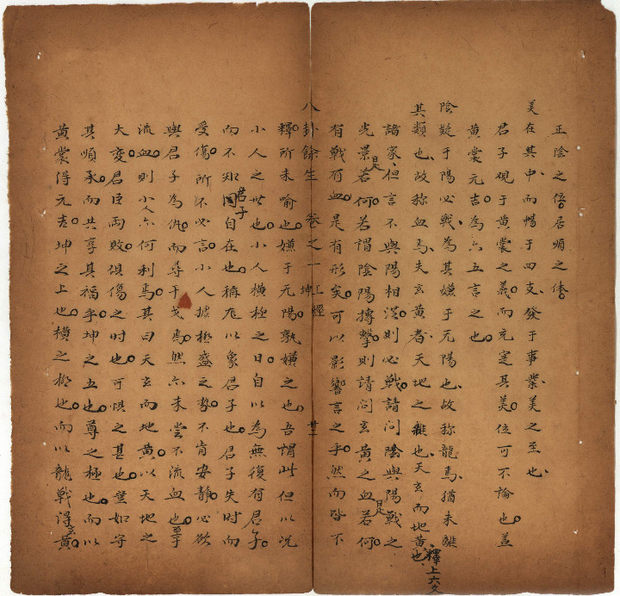 正陰之位居順之体
美在其中而暢于四支發于事業美之至也
君子觀于黃裳之義而元定其美位可不論也蓋
黃裳元吉為六五言之也
陰疑于陽必戰為其嫌于无陽也故称龍焉猶未離
其類也故称血焉夫玄黃者天地之雜也天玄而地黃也 釋上六文
諸家但言不與陽相從則必戰請問陰與陽戰之
光景是若何若謂陰陽摶擊則請問玄黃之血是若何
有戰有血是有形矣可以影響言之乎然而皆下
八卦餘生 卷之一 上經 坤 廿二
釋所未喻也嫌于无陽孰嫌之也吾謂此但以况
小人之世也小人橫極之日自以為無復有君子
而不知君子固自在也稱龍以象君子也君子失時而
受傷所不必言小人據極盛之勢不肯安靜必欲
與君子為仇而尋干戈焉然亦未嘗不流血也至于
流血則小人亦何利焉其曰天玄而地黃以天地之
大變君臣兩敗俱傷之時也可惧之甚也豈如守
其順承而共享其福乎坤之五也尊之極也而以
黃裳得元吉坤之上也橫之極也而以龍戰得玄黃